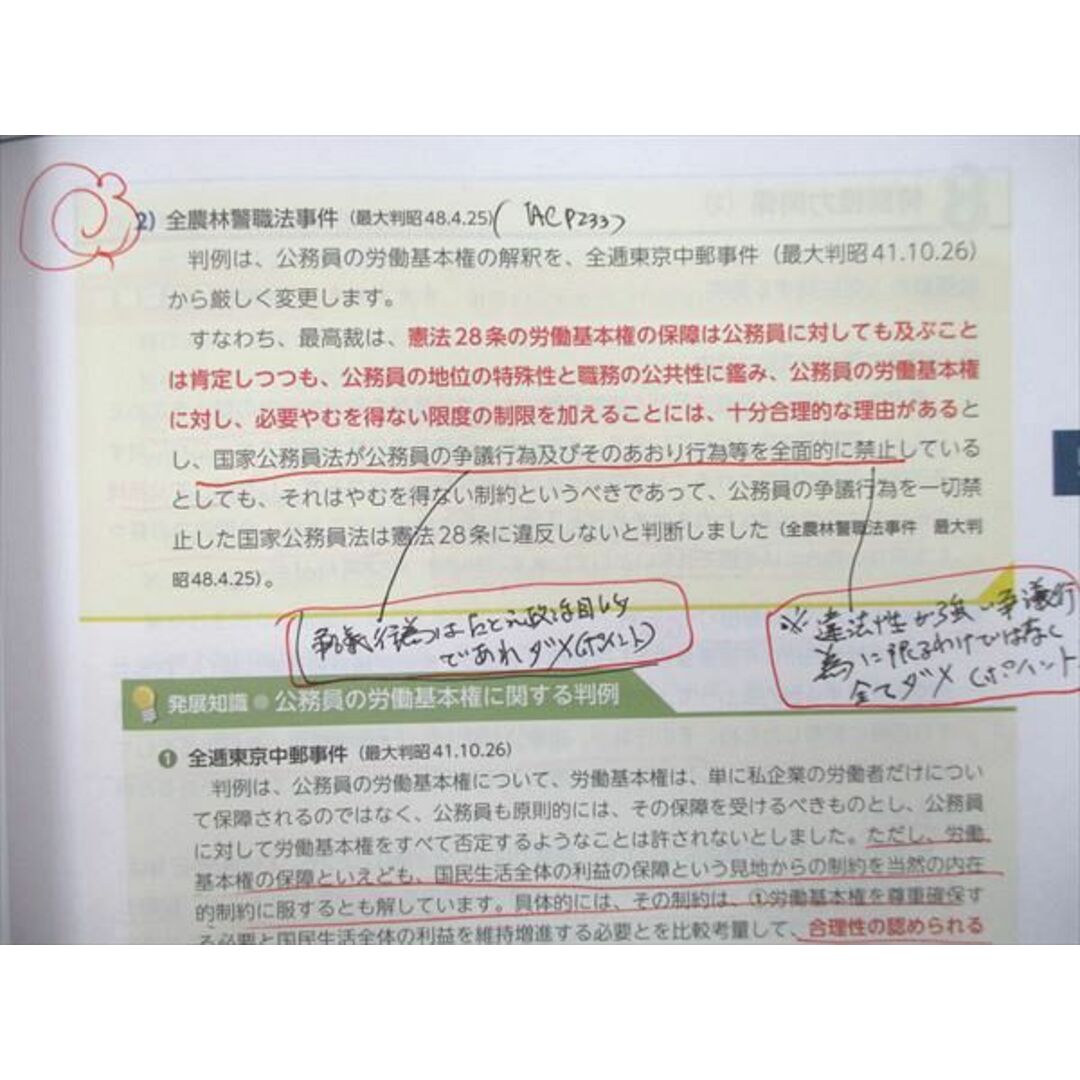 2) 全農林警職法事件（最大判昭48.4.25）(TACP233)
判例は、公務員の労働基本権の解釈を、全逓東京中郵事件（最大判昭41.10.26）
から厳しく変更します。
すなわち、最高裁は、憲法28条の労働基本権の保障は公務員に対しても及ぶこと
は肯定しつつも、公務員の地位の特殊性と職務の公共性に鑑み、公務員の労働基本権
に対し、必要やむを得ない限度の制限を加えることには、十分合理的な理由があると
し、国家公務員法が公務員の争議行為及びそのあおり行為等を全面的に禁止している
としても、それはやむを得ない制約というべきであって、公務員の争議行為を一切禁
止した国家公務員法は憲法28条に違反しないと判断しました（全農林警職法事件　最大判
昭48.4.25）。
争議行為はたとえ政治目的
であれダメ(ポイント)
※違法性が強い争議行
為に限るわけではなく
全てダメ(ポイント
発展知識 公務員の労働基本権に関する判例
❶ 全逓東京中郵事件（最大判昭41.10.26）
判例は、公務員の労働基本権について、労働基本権は、単に私企業の労働者だけについ
て保障されるのではなく、公務員も原則的には、その保障を受けるべきものとし、公務員
に対して労働基本権をすべて否定するようなことは許されないとしました。ただし、労働
基本権の保障といえども、国民生活全体の利益の保障という見地からの制約を当然の内在
的制約に服するとも解しています。具体的には、その制約は、①労働基本権を尊重確保す
る必要と国民生活全体の利益を維持増進する必要とを比較考量して、合理性の認められる